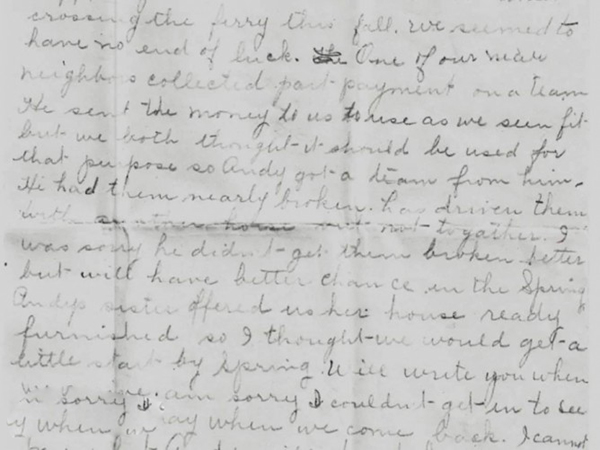 crossing the ferry this fall. we seemed to
have no end of luck. the One of our near
neighbors collected part payment on a team
He sent the money to us to use as we seen fit
but we both thought it should be used for
that purpose so Andy got a team from him.
He had them nearly broken. has driven them
with another horse but not together. I
was sorry he didn't get them broken better
but will have better chance in the Spring
Andys sister offered us her house ready
furnished so I thought we would get a
little start by Spring. Will write you when
am sorry I couldnt get in to see
when we come back. I cannot